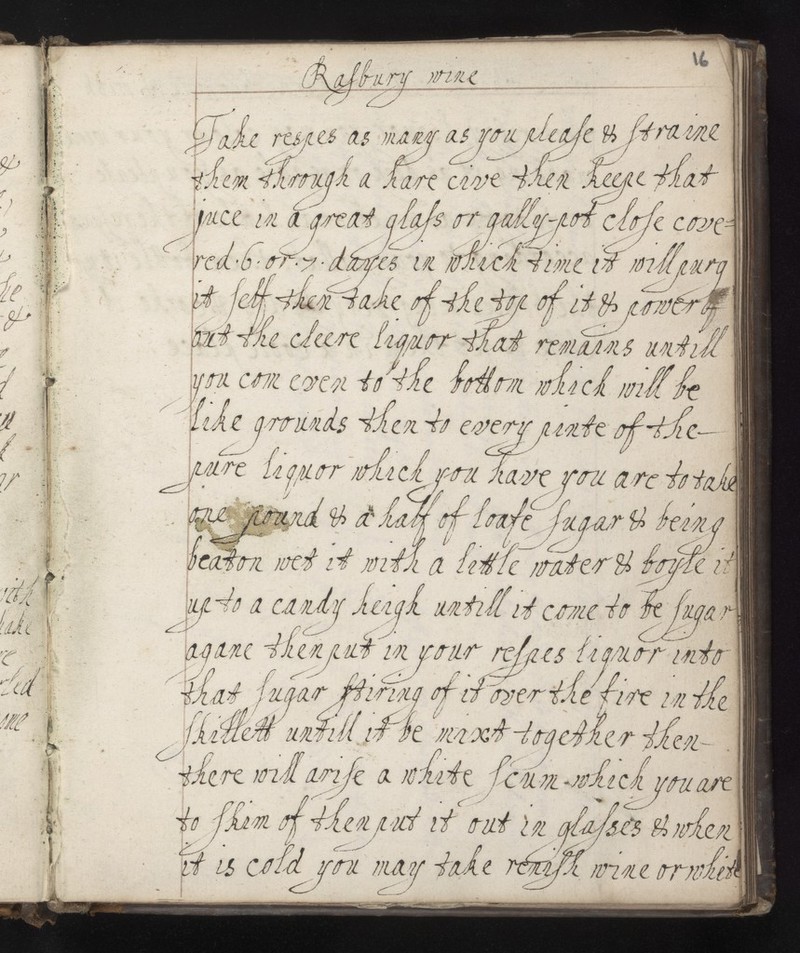 16
Rasbury wine
Take respes as many as you please & straine
them through a hare cive then keepe that
juce in a great glass or gally-pot close cove=
red .6. or .7. dayes in which time it will purg
it self then take of the top of it & power
out the cleere liquor that remains untill
you com even to the bottom which will be
like grounds then to every pinte of the
pure liquor which you have you are to take
one pound & a half of loafe sugar & being
beaton wet it with a little water & boyle it
up to a candy heigh untill it come to be sugar
agane then put in your respes liquor into
that sugar stiring of it over the fire in the
skillett untill it be mixt together then
there will arise a white scum which you are
to skim of then put it out in glasses & when
it is cold you may take renish wine or white